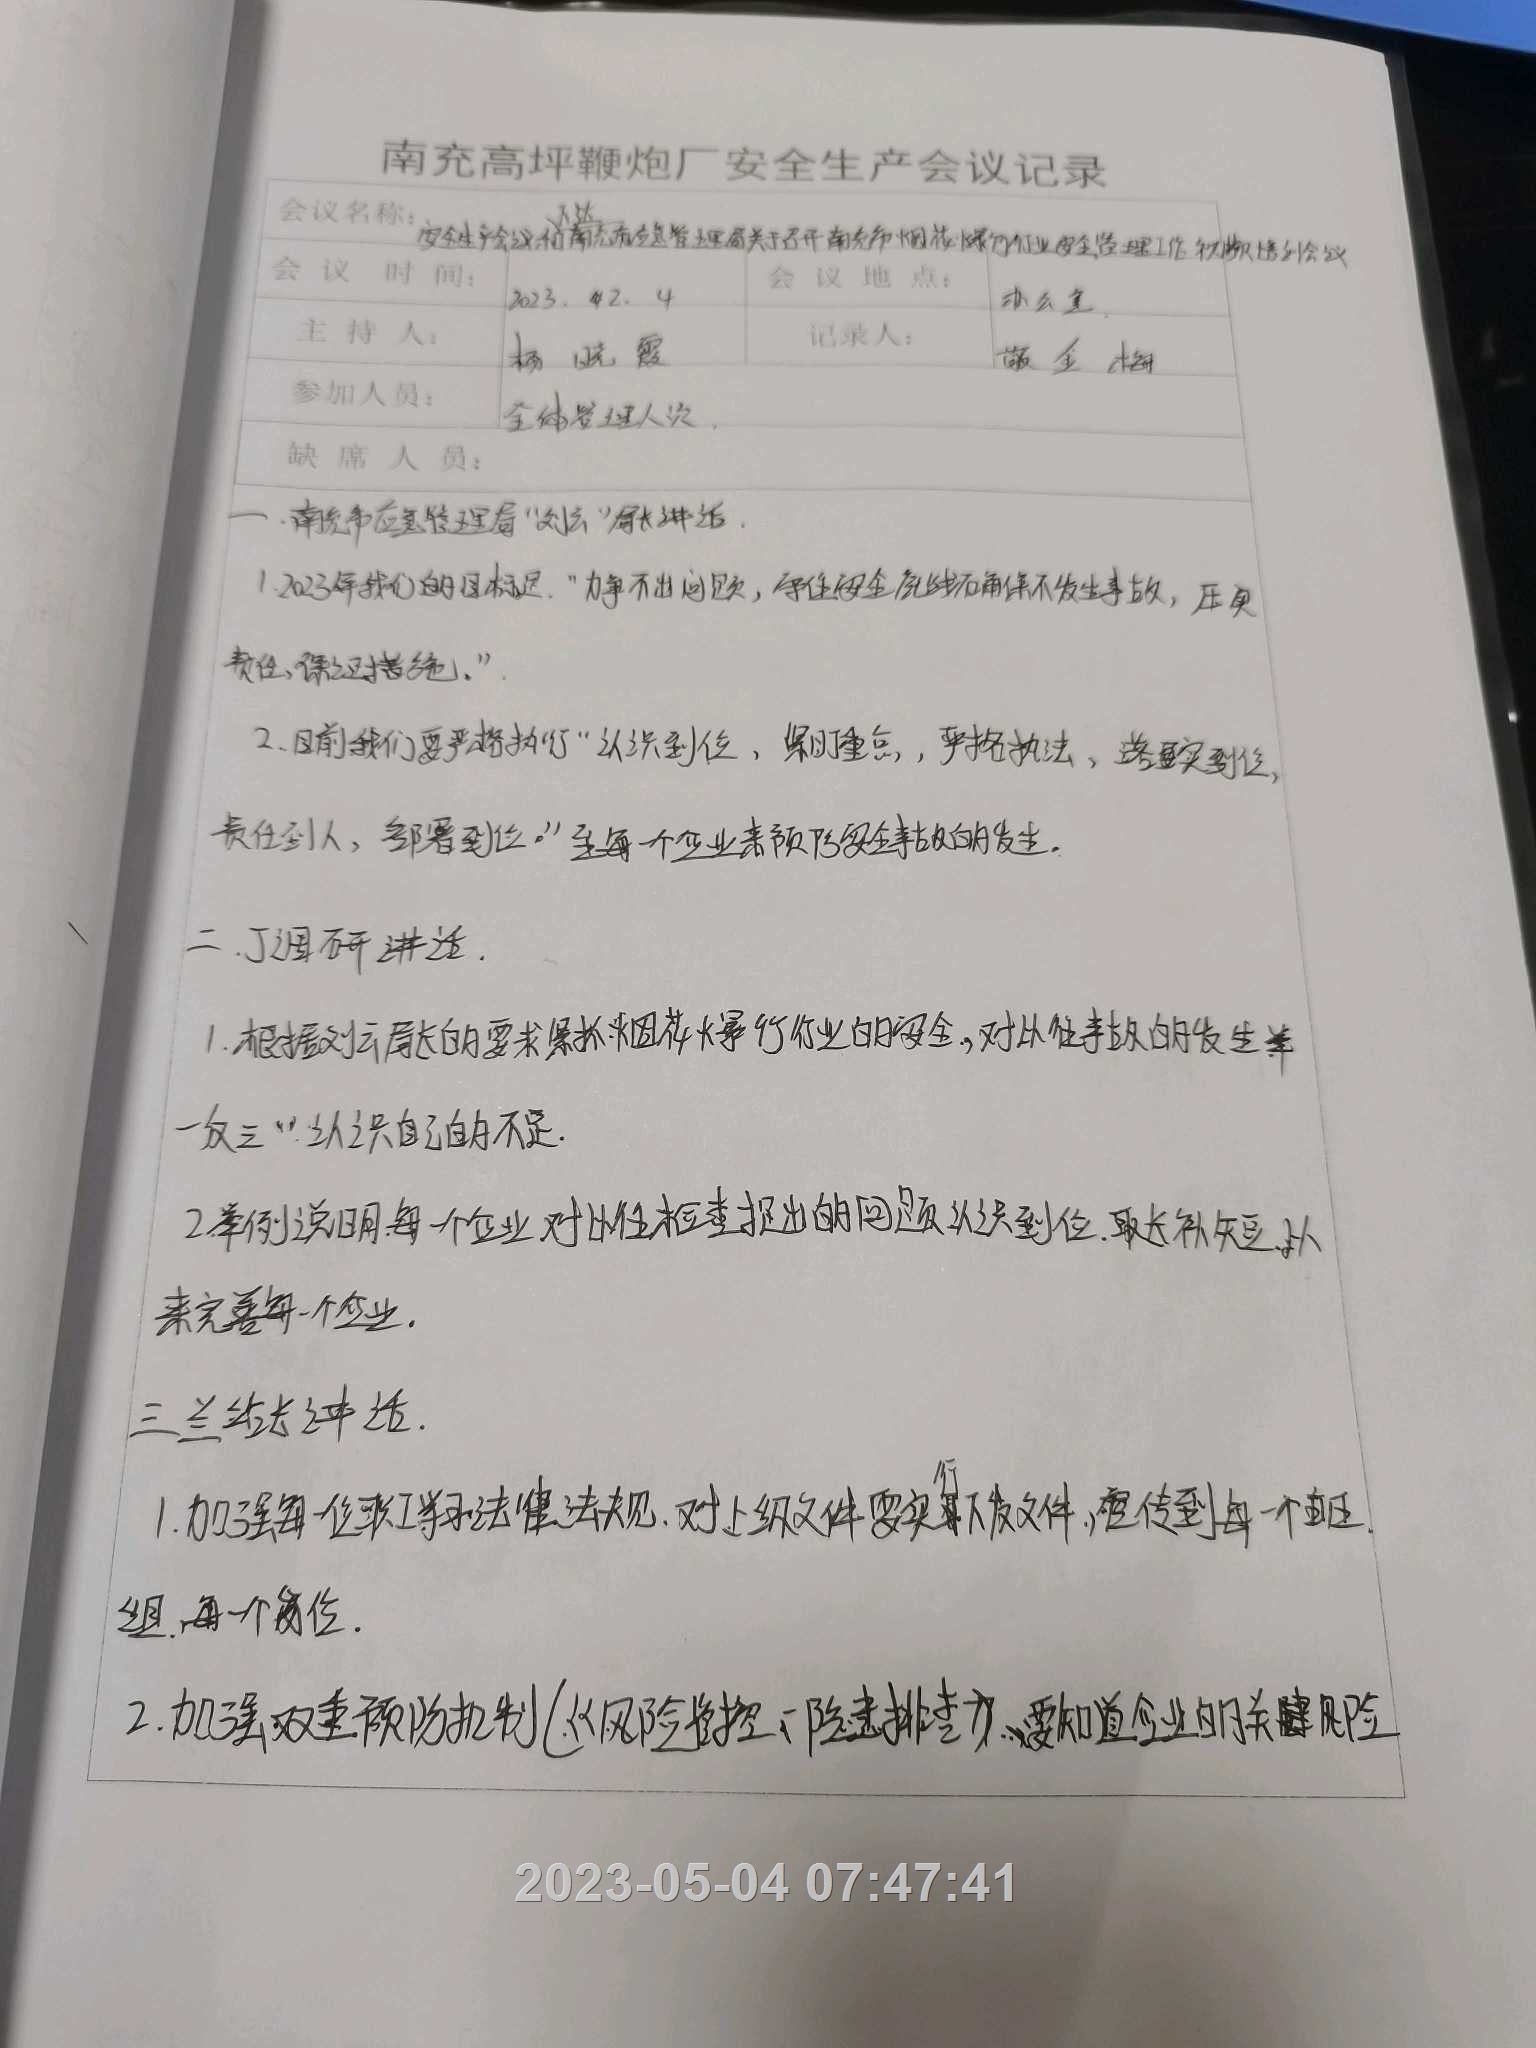 南充高坪鞭炮厂安全生产会议记录
会议名称：
下达
安全生产会议和南充市应急管理局关于召开南充市烟花爆竹行业安全管理工作视频培训会议
会议时间： 2023. 2. 4 会议地点： 办公室.
主持人： 杨晓霞 记录人： 敬金梅
参加人员： 全体管理人员.
缺席人员：
一.南充市应急管理局"刘云"局长讲话.
1.2023年我们的目标是."力争不出问题,守住安全底线确保不发生事故,压实
责任,保证措施."
2.目前我们要严格执行"认识到位、紧盯重点,严格执法、落实到位,
责任到人,部署到位."至每一个企业来预防安全事故的发生.
二.丁调研讲话.
1.根据刘云局长的要求紧抓烟花爆竹行业的安全,对以往事故的发生举
一反三"认识自己的不足.
2举例说明每一个企业对以往检查提出的问题认识到位.取长补短.以
来完善每一个企业.
三兰站长讲话.
行
1.加强每一位职工学习法律法规.对上级文件要实下发文件,宣传到每一个班
组.每一个岗位.
2.加强双重预防机制(《风险管控、隐患排查》.要知道企业的关键风险
2023-05-04 07:47:41